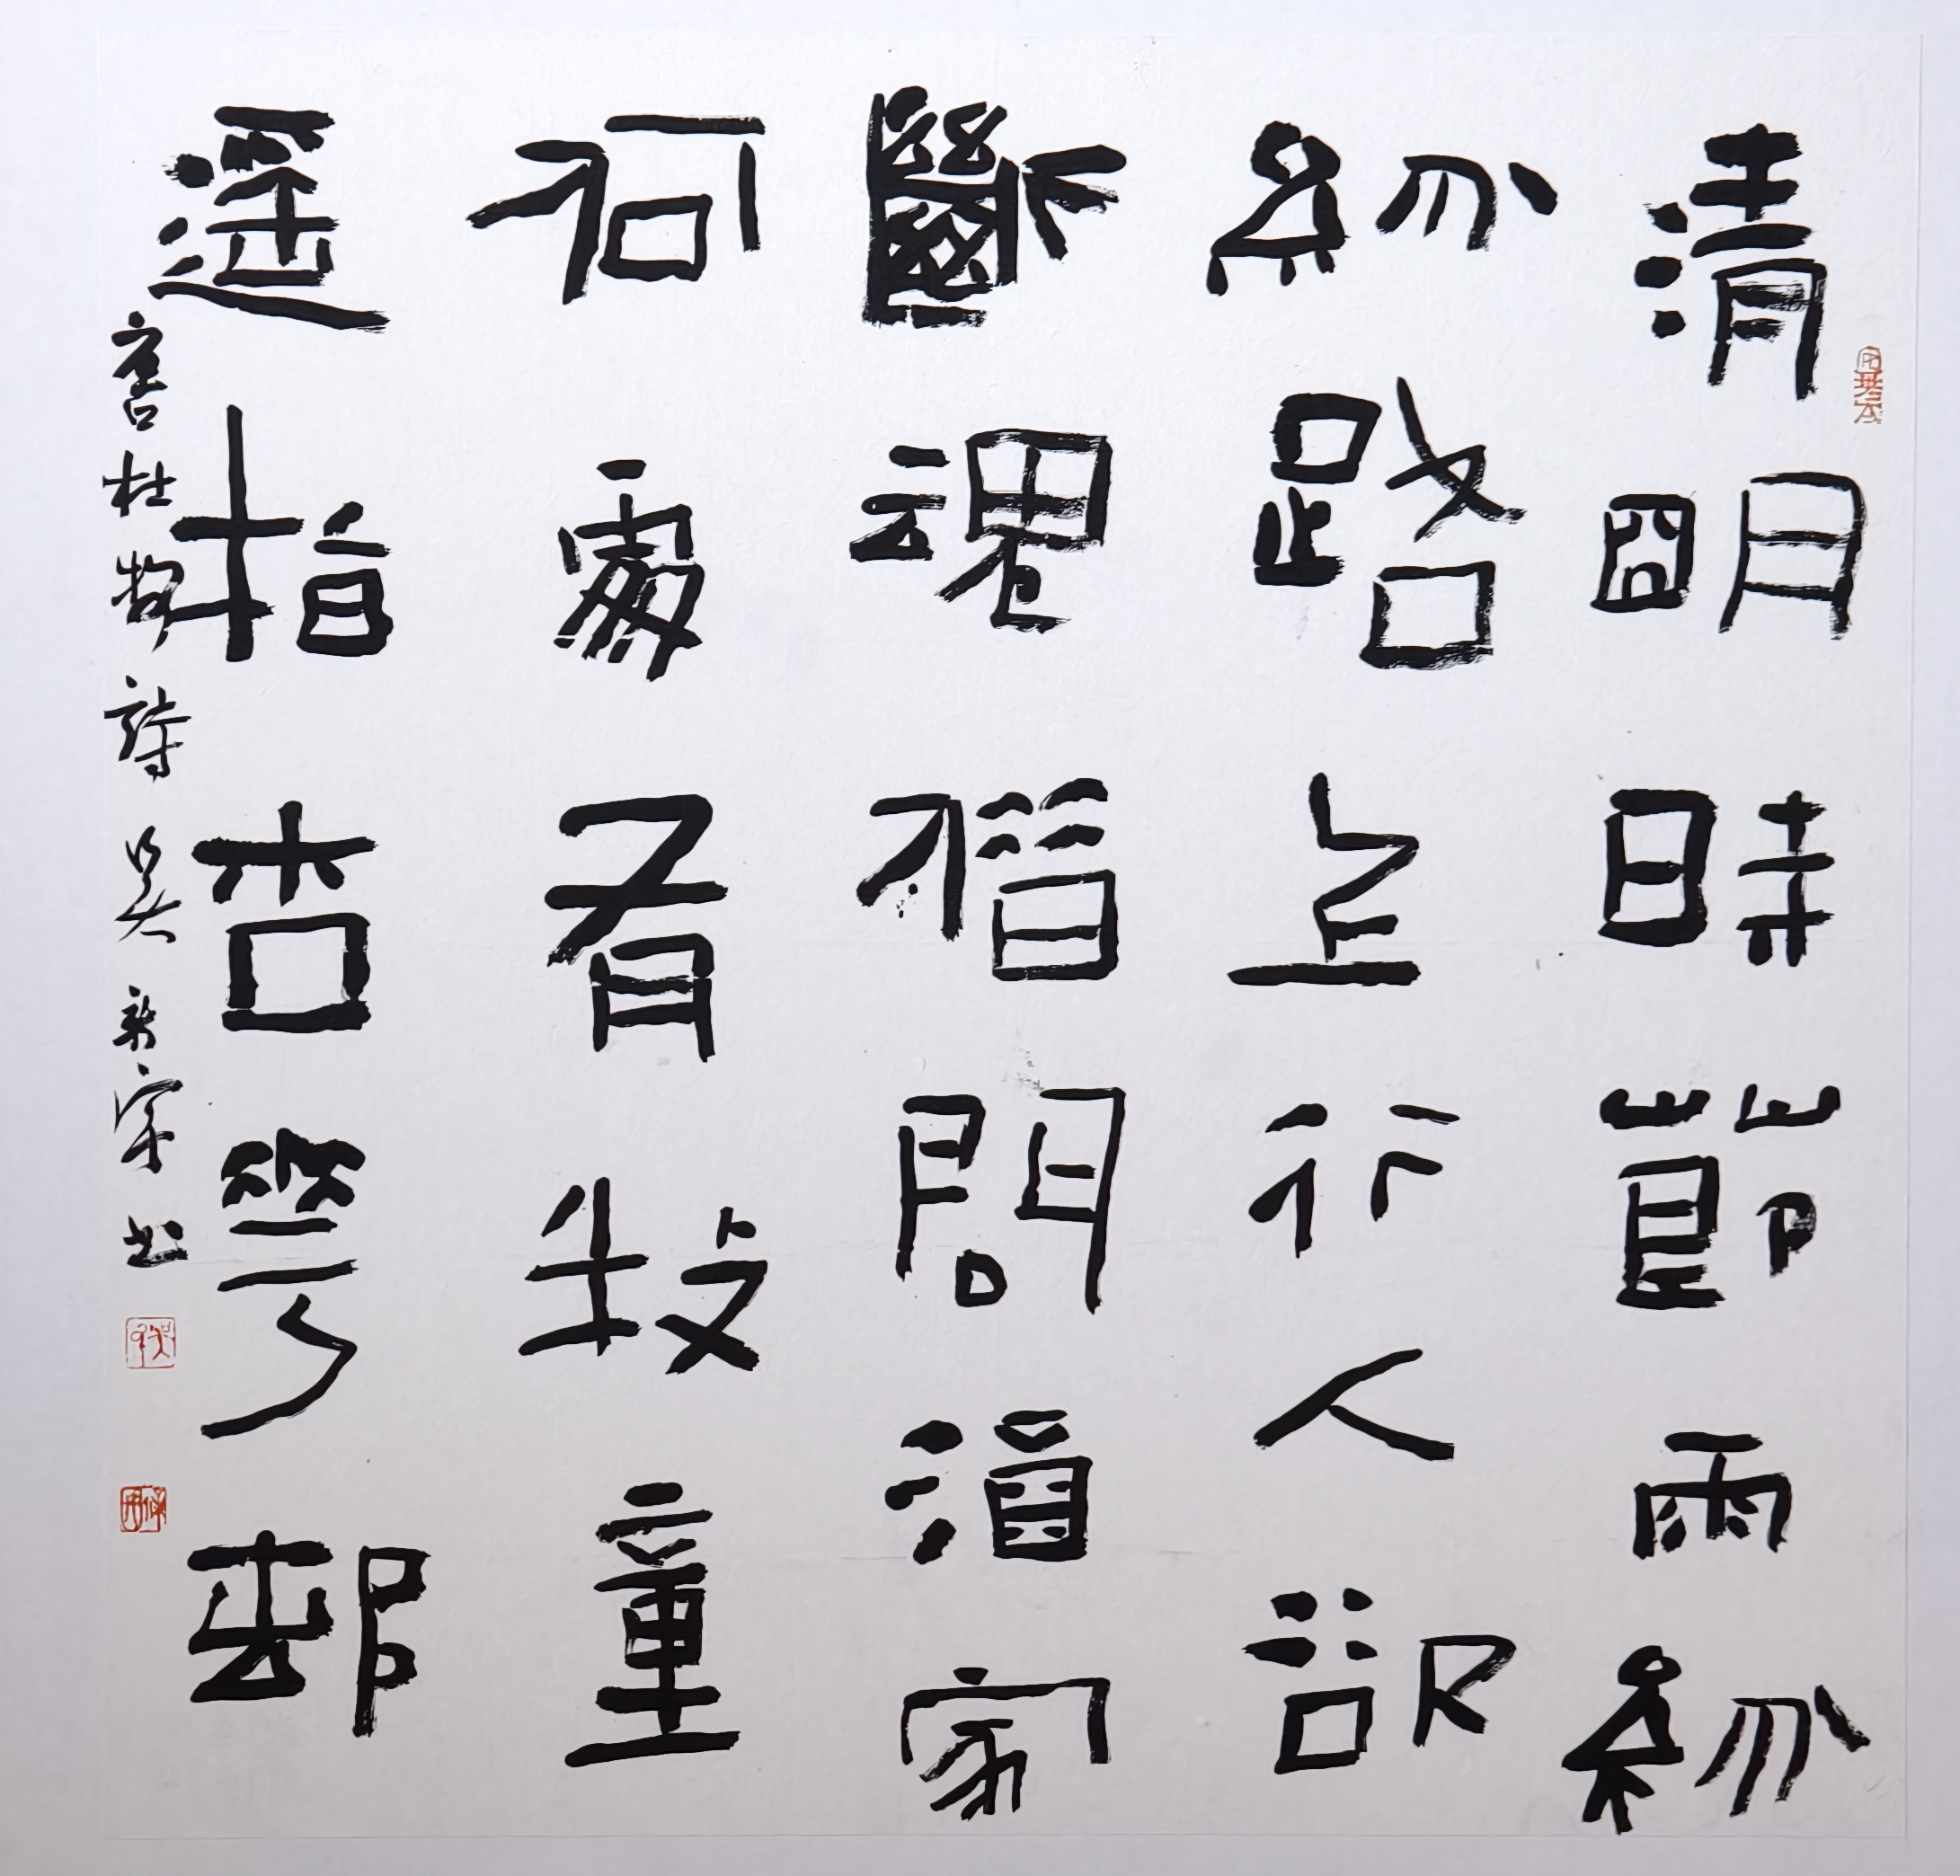 清明時節雨紛
紛路上行人欲
斷魂借問酒家
何處有牧童
遥指杏花邨
唐杜牧詩 吴
書